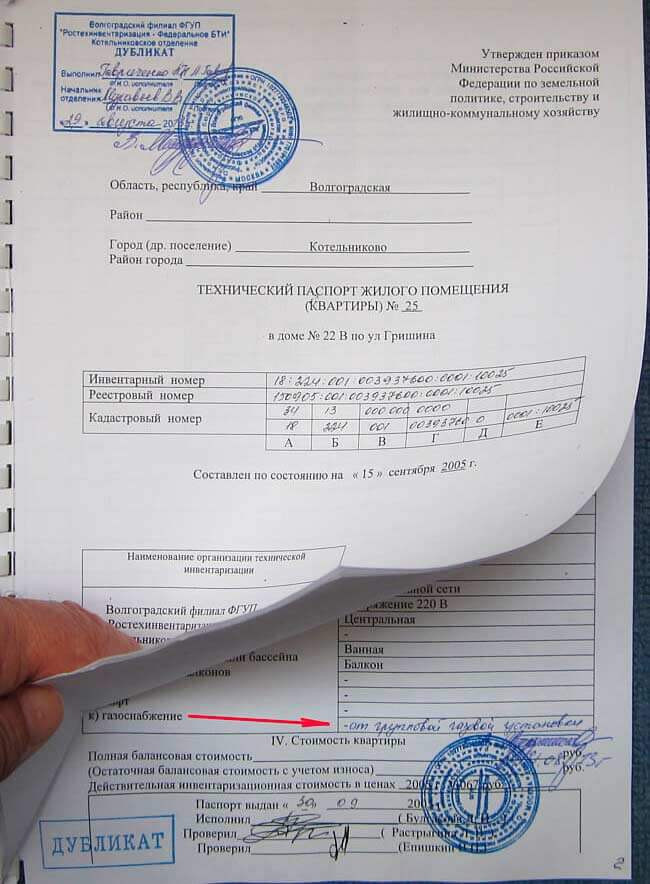 Волгоградский филиал ФГУП
"Ростехинвентаризация - Федеральное БТИ"
Котельниковское отделение
ДУБЛИКАТ
Выполнил
Ф И О исполнителя
Начальник
отделения
Ф И О исполнителя
« 29 » августа
Утвержден приказом
Министерства Российской
Федерации по земельной
политике, строительству и
жилищно-коммунальному хозяйству
МОСКВА
Область, республика, край Волгоградская
Район
Город (др. поселение) Котельниково
Район города
ТЕХНИЧЕСКИЙ ПАСПОРТ ЖИЛОГО ПОМЕЩЕНИЯ
(КВАРТИРЫ) № 25
в доме № 22 В по ул Гришина
Инвентарный номер 18:224:001:003937600:0001:10025
Реестровый номер 150905:001:003937600:0001:10025
Кадастровый номер 34 13 000 000 0000
18 224 001 0 0001:10025
А Б В Г Д Е
Составлен по состоянию на « 15 » сентября 2005 г.
Наименование организации технической
инвентаризации
ной сети
Волгоградский филиал ФГУП
ряжение 220 В
Центральная
-
бассейна Ванная
Балкон
-
-
к) газоснабжение -от групповой газовой установки
IV. Стоимость квартиры
Полная балансовая стоимость руб.
(Остаточная балансовая стоимость с учетом износа) руб.
Действительная инвентаризационная стоимость в ценах
Паспорт выдан « 30 » 09
Исполнил
Проверил ( Растрыгина
Проверил (Епишкин
ДУБЛИКАТ
2